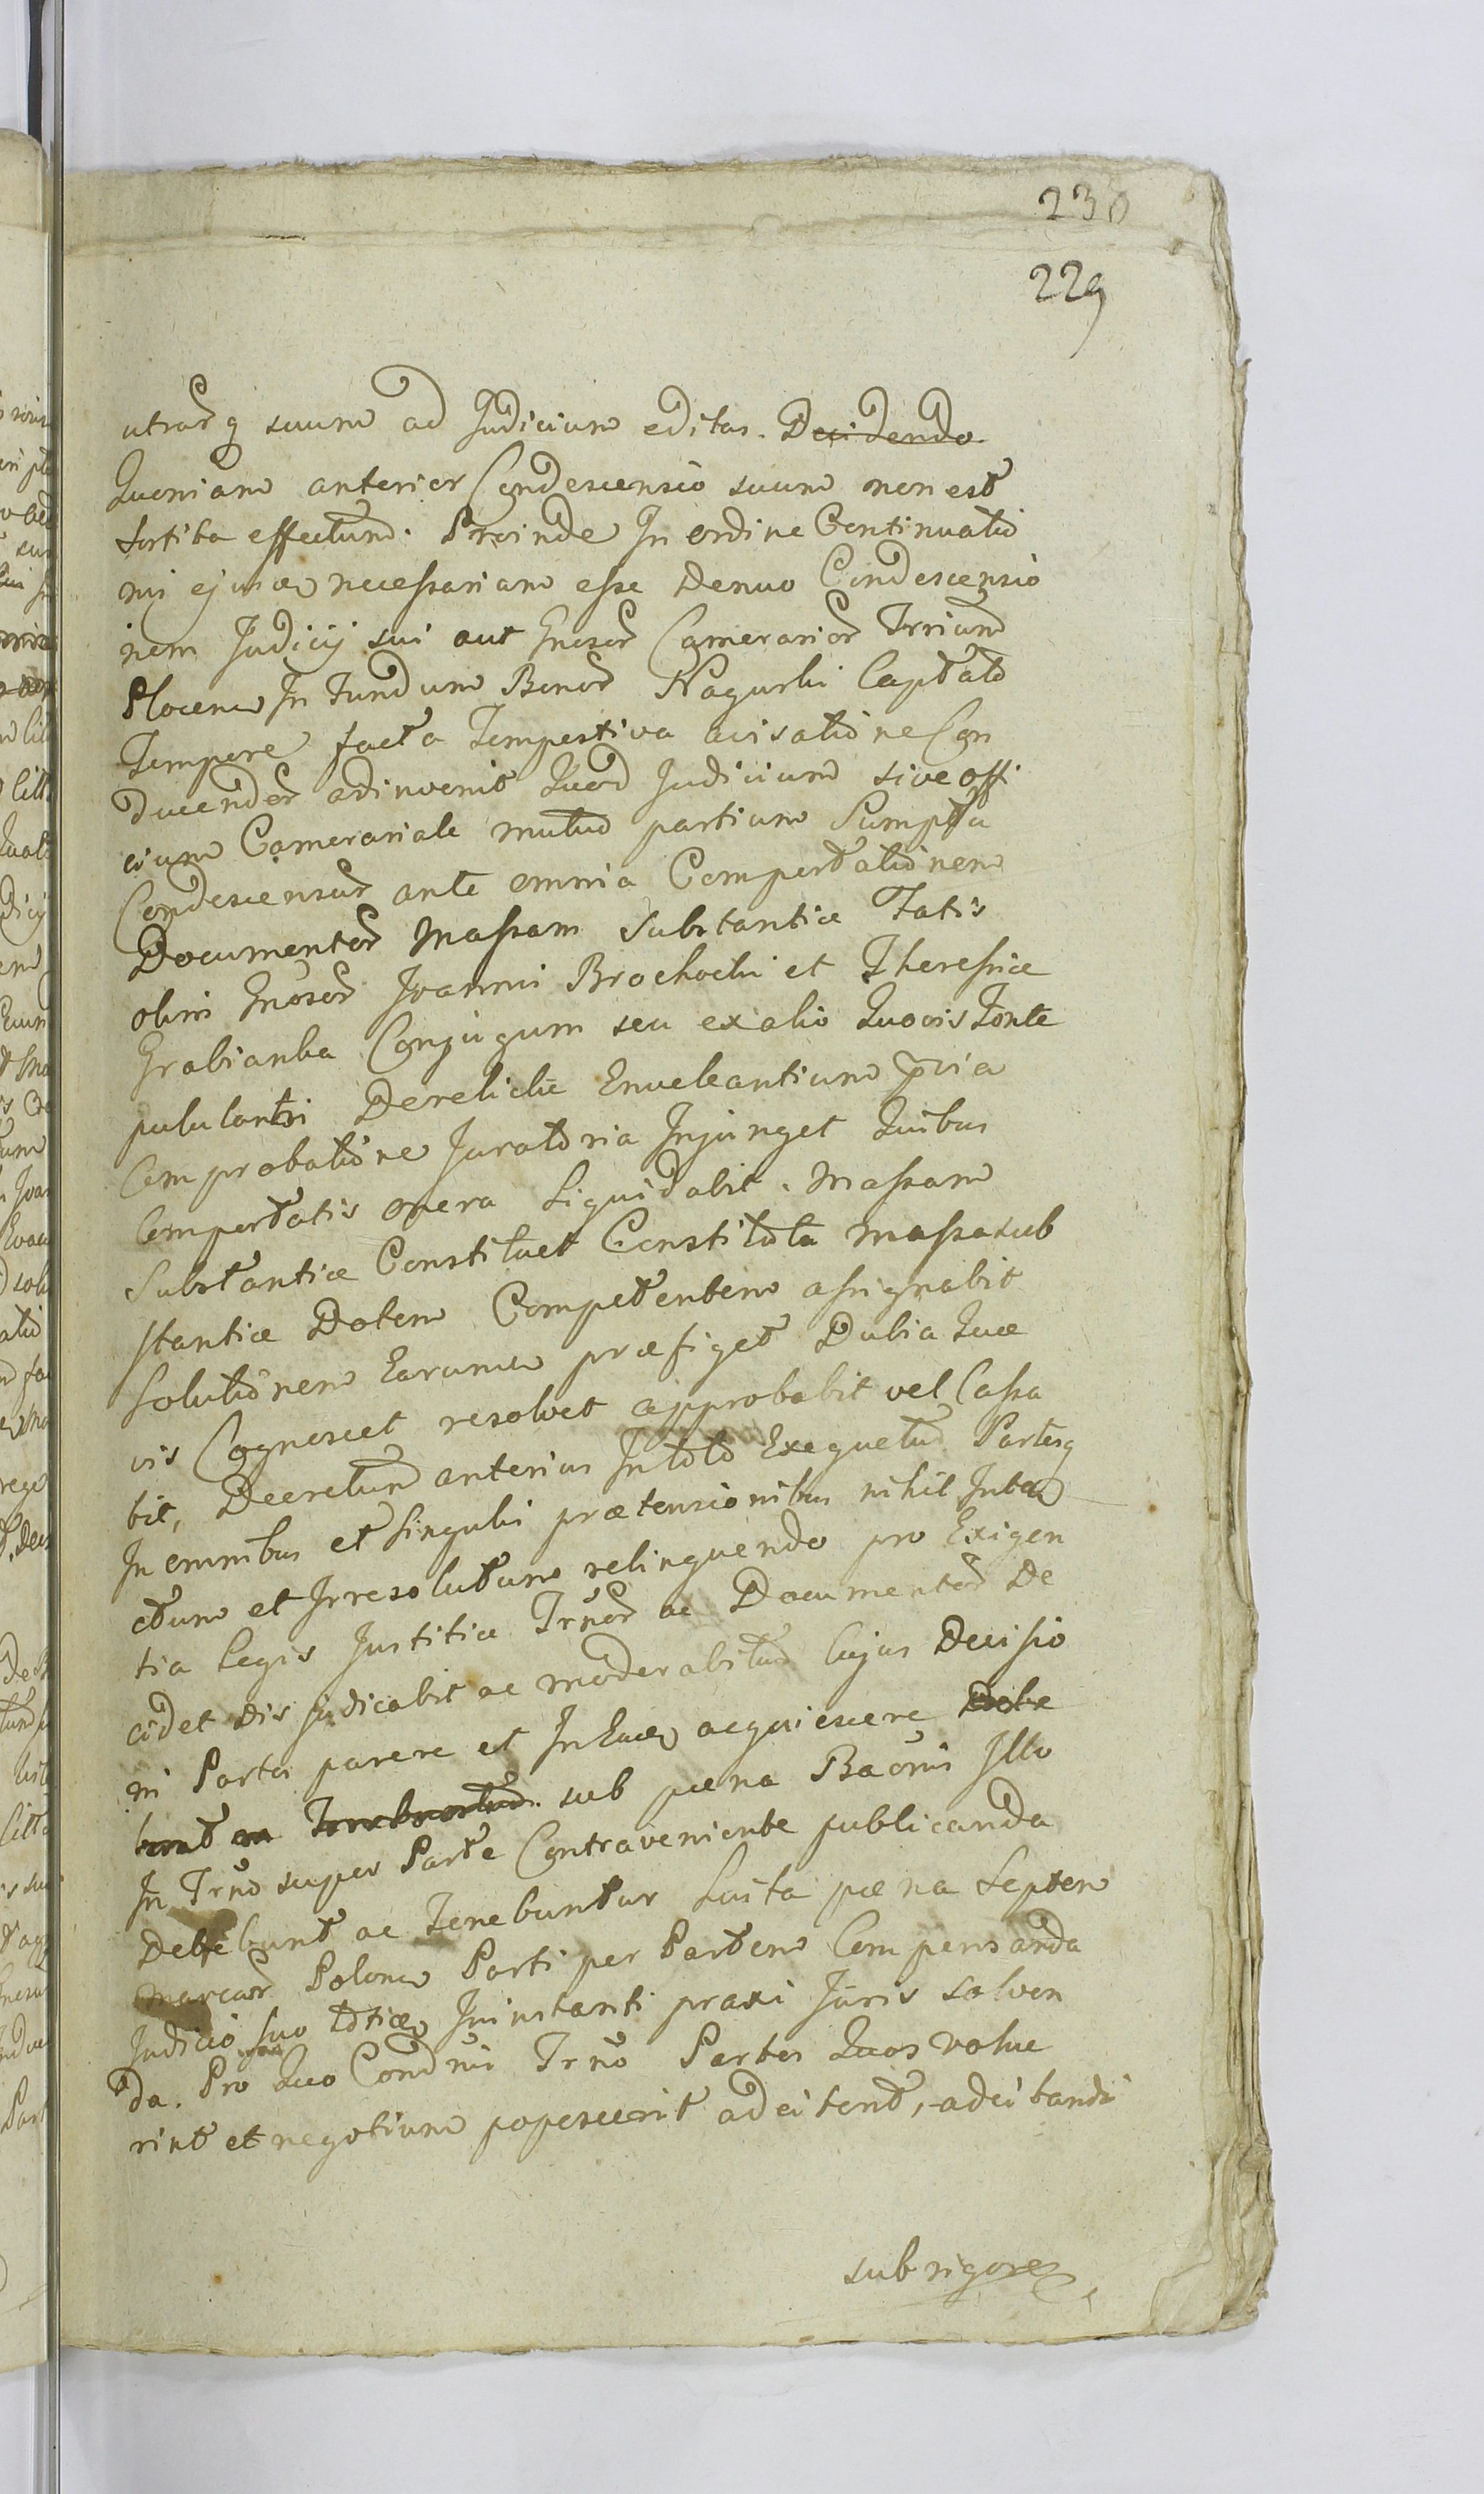 230
229
utrarq suum ad Judicium editas. Decidendo
Quoniam anterior Condescensio suum non est
sortita effectum. Proinde In ordine Continuatio
nis ejusdem necessariam esse Denuo Condescensio
nem Judicij sui aut Gnosor Camerarior Trrium
Plocen In Fundum Bonor Nagurki Captato
Tempore facta Tempestiva avisatione Con
ducendor adinvenit Quod Judicium sive offi
cium Camerariale mutuo partium Sumptu
Condescensur ante omnia Comportationem
Documentor Massam Substantiæ Fatis
olim Gnosor Joannis Brochocki et Theresiæ
Grabianka Conjugum seu ex alio Quovis Fonte
pululanti Derelictæ Enucleantium pvia
Comprobatione Juratoria Injunget Quibus
Comportatis onera Liquidabit. Massam
Substantiæ Constituet Constituta Massa sub
stantiæ Dotem Competentem assignabit
Solutionem Earum præfiget Dubia Quæ
vis Cognoscet resolvet approbabit vel Cassa
bit, Decretum anterius In toto Exequetur Partesq
In omnibus et singulis prætensionibus nihil Inta
ctum et Irresolutum relinquendo pro Exigen
tia Legis Justitiæ Trnor ac Documentor De
cidet disjudicabit ac moderabitur Cujus Decisio
ni Partes parere et In Ea acquiescere Debe
bunt ac Tenebuntur sub pœna Baonis Illo
In Trno super Parte Contraveniente publicanda
Debebunt ac Tenebuntur Luita pœna Septem
Marcar Polon Parti per Partem Compensanda
Judicio suo totiæ In instanti praxi Juris solven
da. Pro Quo Condnis Trno Partes Quos volue
rint et negotium poposcerit adcitent, adcitandi
sub rigore